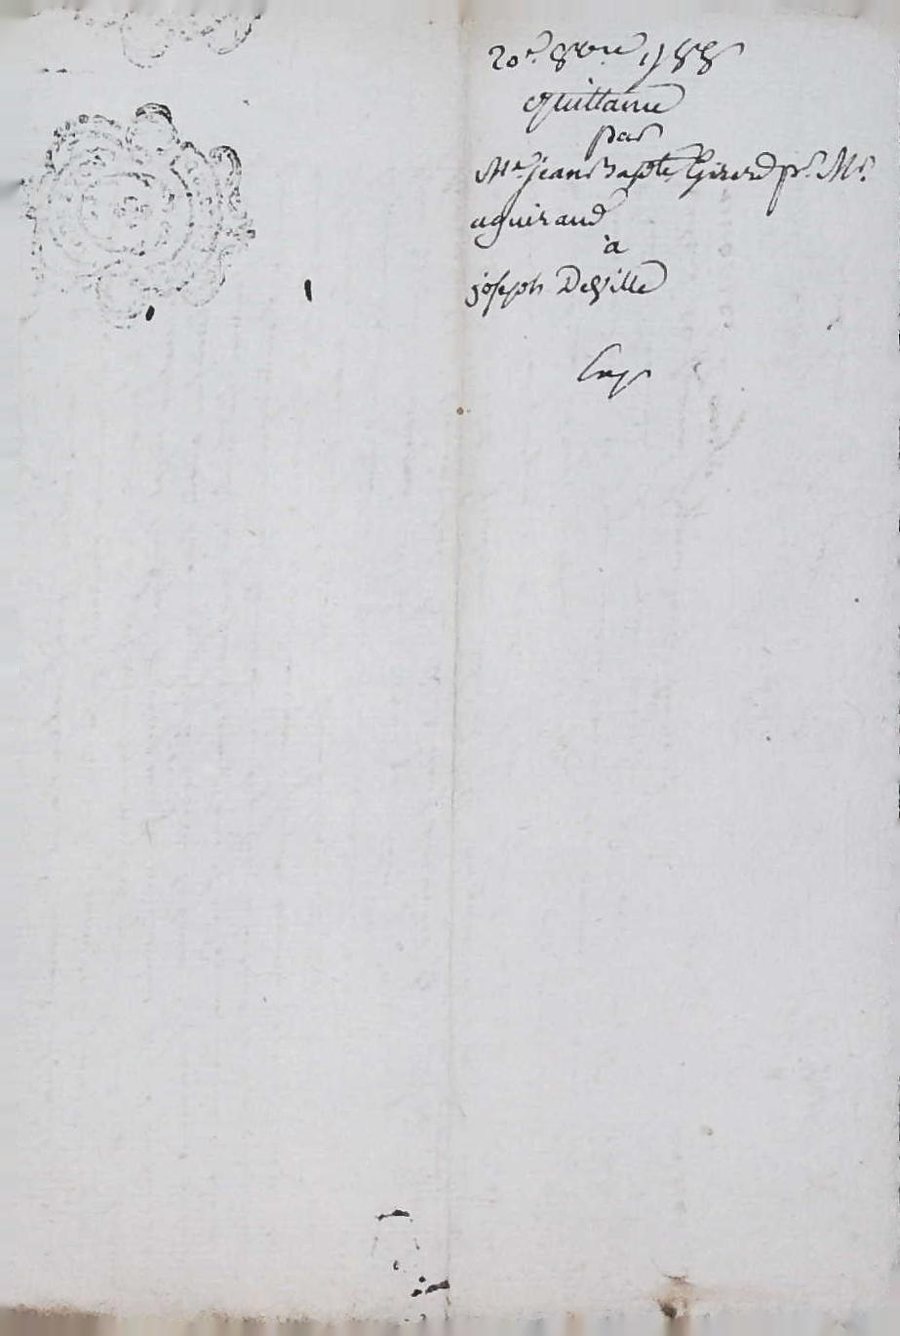 20e 8bre 1788
Quittance
par
Me jean Bapte Girard pr. Mr.
aguiraud
à
joseph Deville